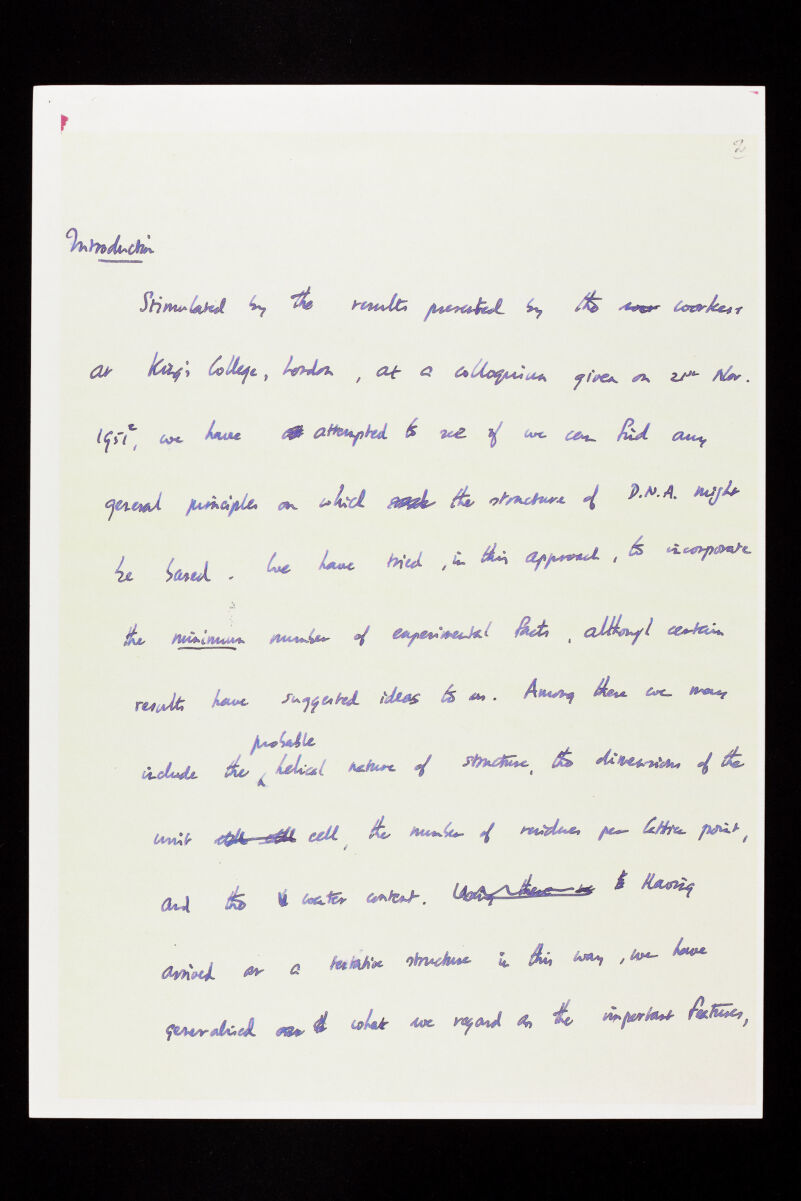 2
Introduction
Stimulated by the results presented by the workers
at King's College, London, at a colloquium given on 21st Nov.
1951², we have attempted to see if we can find any
general principles on which the structure of D.N.A. might
be based. We have tried, in this approach, to incorporate
the minimum number of experimental facts, although certain
results have suggested ideas to us. Among these we may
probable
include the helical nature of structure, the dimensions of the
unit cell, the number of residues per lattice point,
and the water content. Having
arrived at a tentative structure in this way, we have
generalised what we regard as the important features,